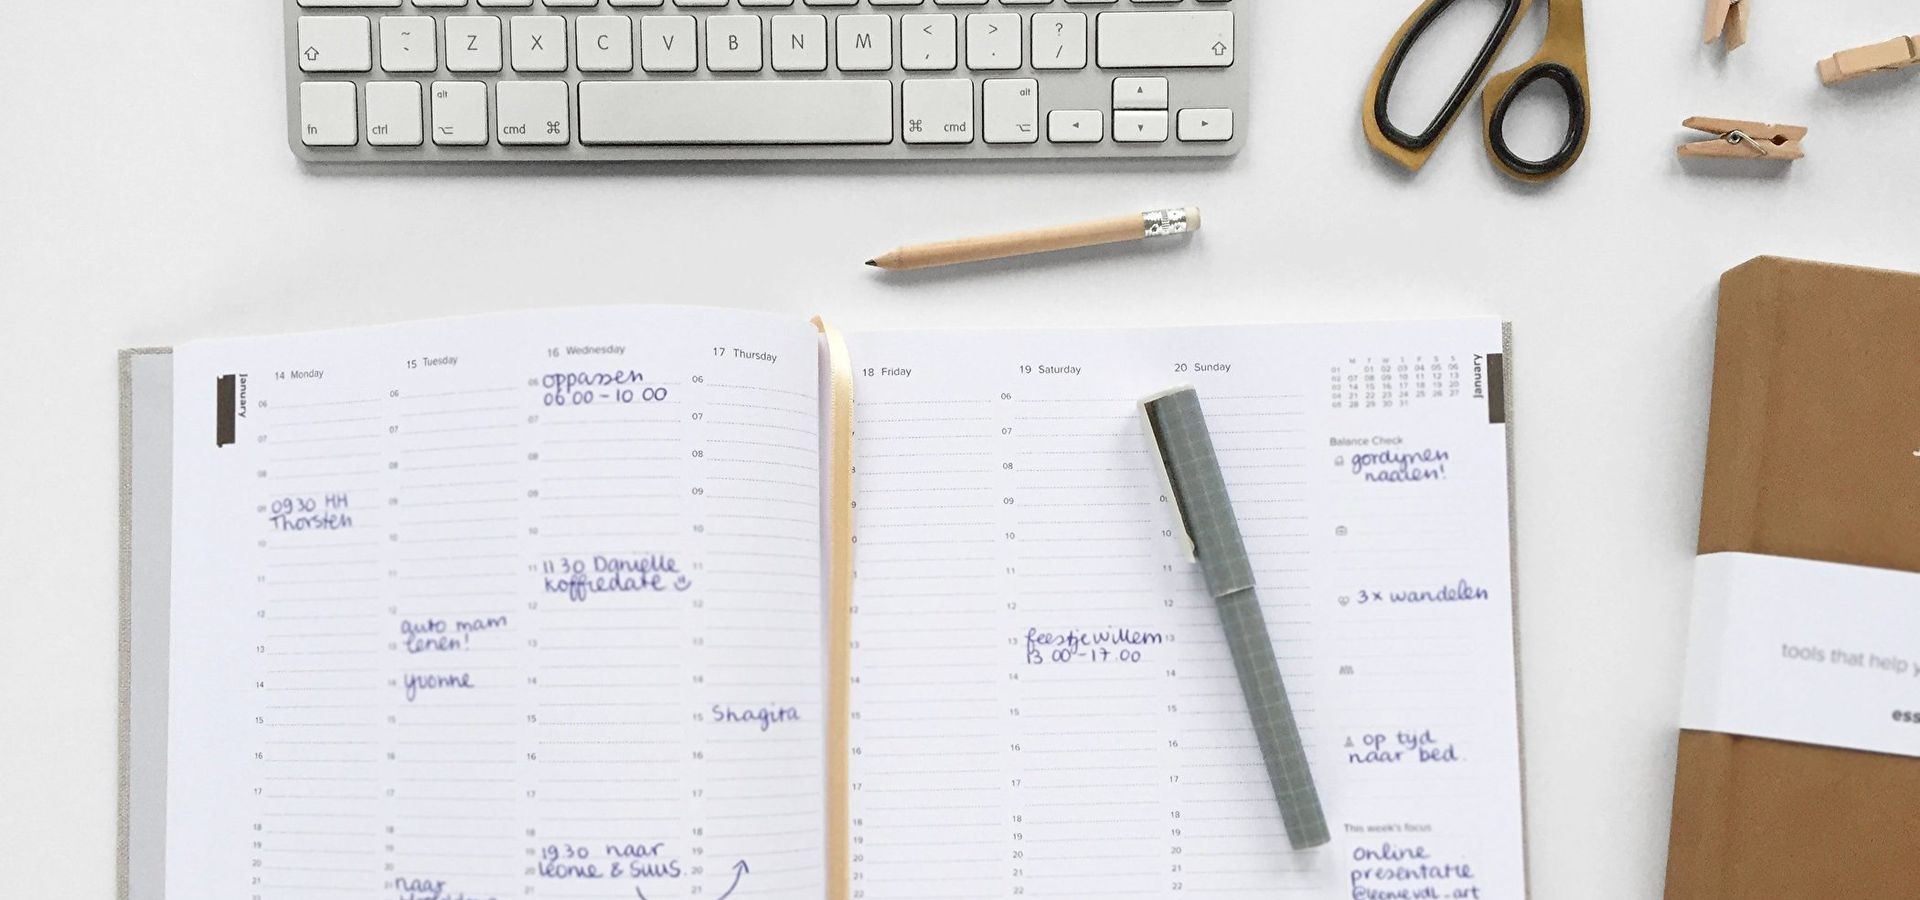 ~
`
Z
X
C
V
B
N
M
<
,
>
.
?
/
fn
ctrl
alt
cmd
cmd
alt
January
14 Monday
06
07
08
09
0930 HH
Thorsten
10
11
12
13
14
15
16
17
18
19
20
21
15 Tuesday
06
07
08
09
10
11
12
auto mam
13 lenen!
14 yvonne
15
16
17
18
19
20
21 naar
16 Wednesday
06 oppassen
06 00 - 10 00
07
08
09
10
11 11 30 Danielle
koffiedate
12
13
14
15
16
17
18
19 19.30 naar
20 Leonie & Suus.
21
17 Thursday
06
07
08
09
10
11
12
13
14
15 Shagita
16
17
18
19
20
21
18 Friday
12
13
15
16
17
18
19
20
21
22
19 Saturday
06
07
08
09
10
11
12
13 feestje willem
13 00 - 17.00
14
15
16
17
18
19
20
21
22
20 Sunday
10
11
12
13
14
15
16
17
18
19
20
21
22
M T W T F S S
01 01 02 03 04 05 06
02 07 08 09 10 11 12 13
03 14 15 16 17 18 19 20
04 21 22 23 24 25 26 27
05 28 29 30 31
January
Balance Check
gordijnen
naaien!
3x wandelen
op tijd
naar bed.
This week's focus
online
presentatie
@leonievdl_art
tools that help